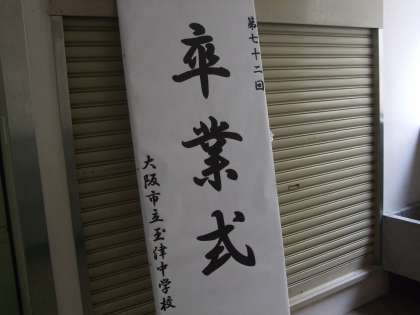 第七十二回
卒業式
大阪市立玉津中学校